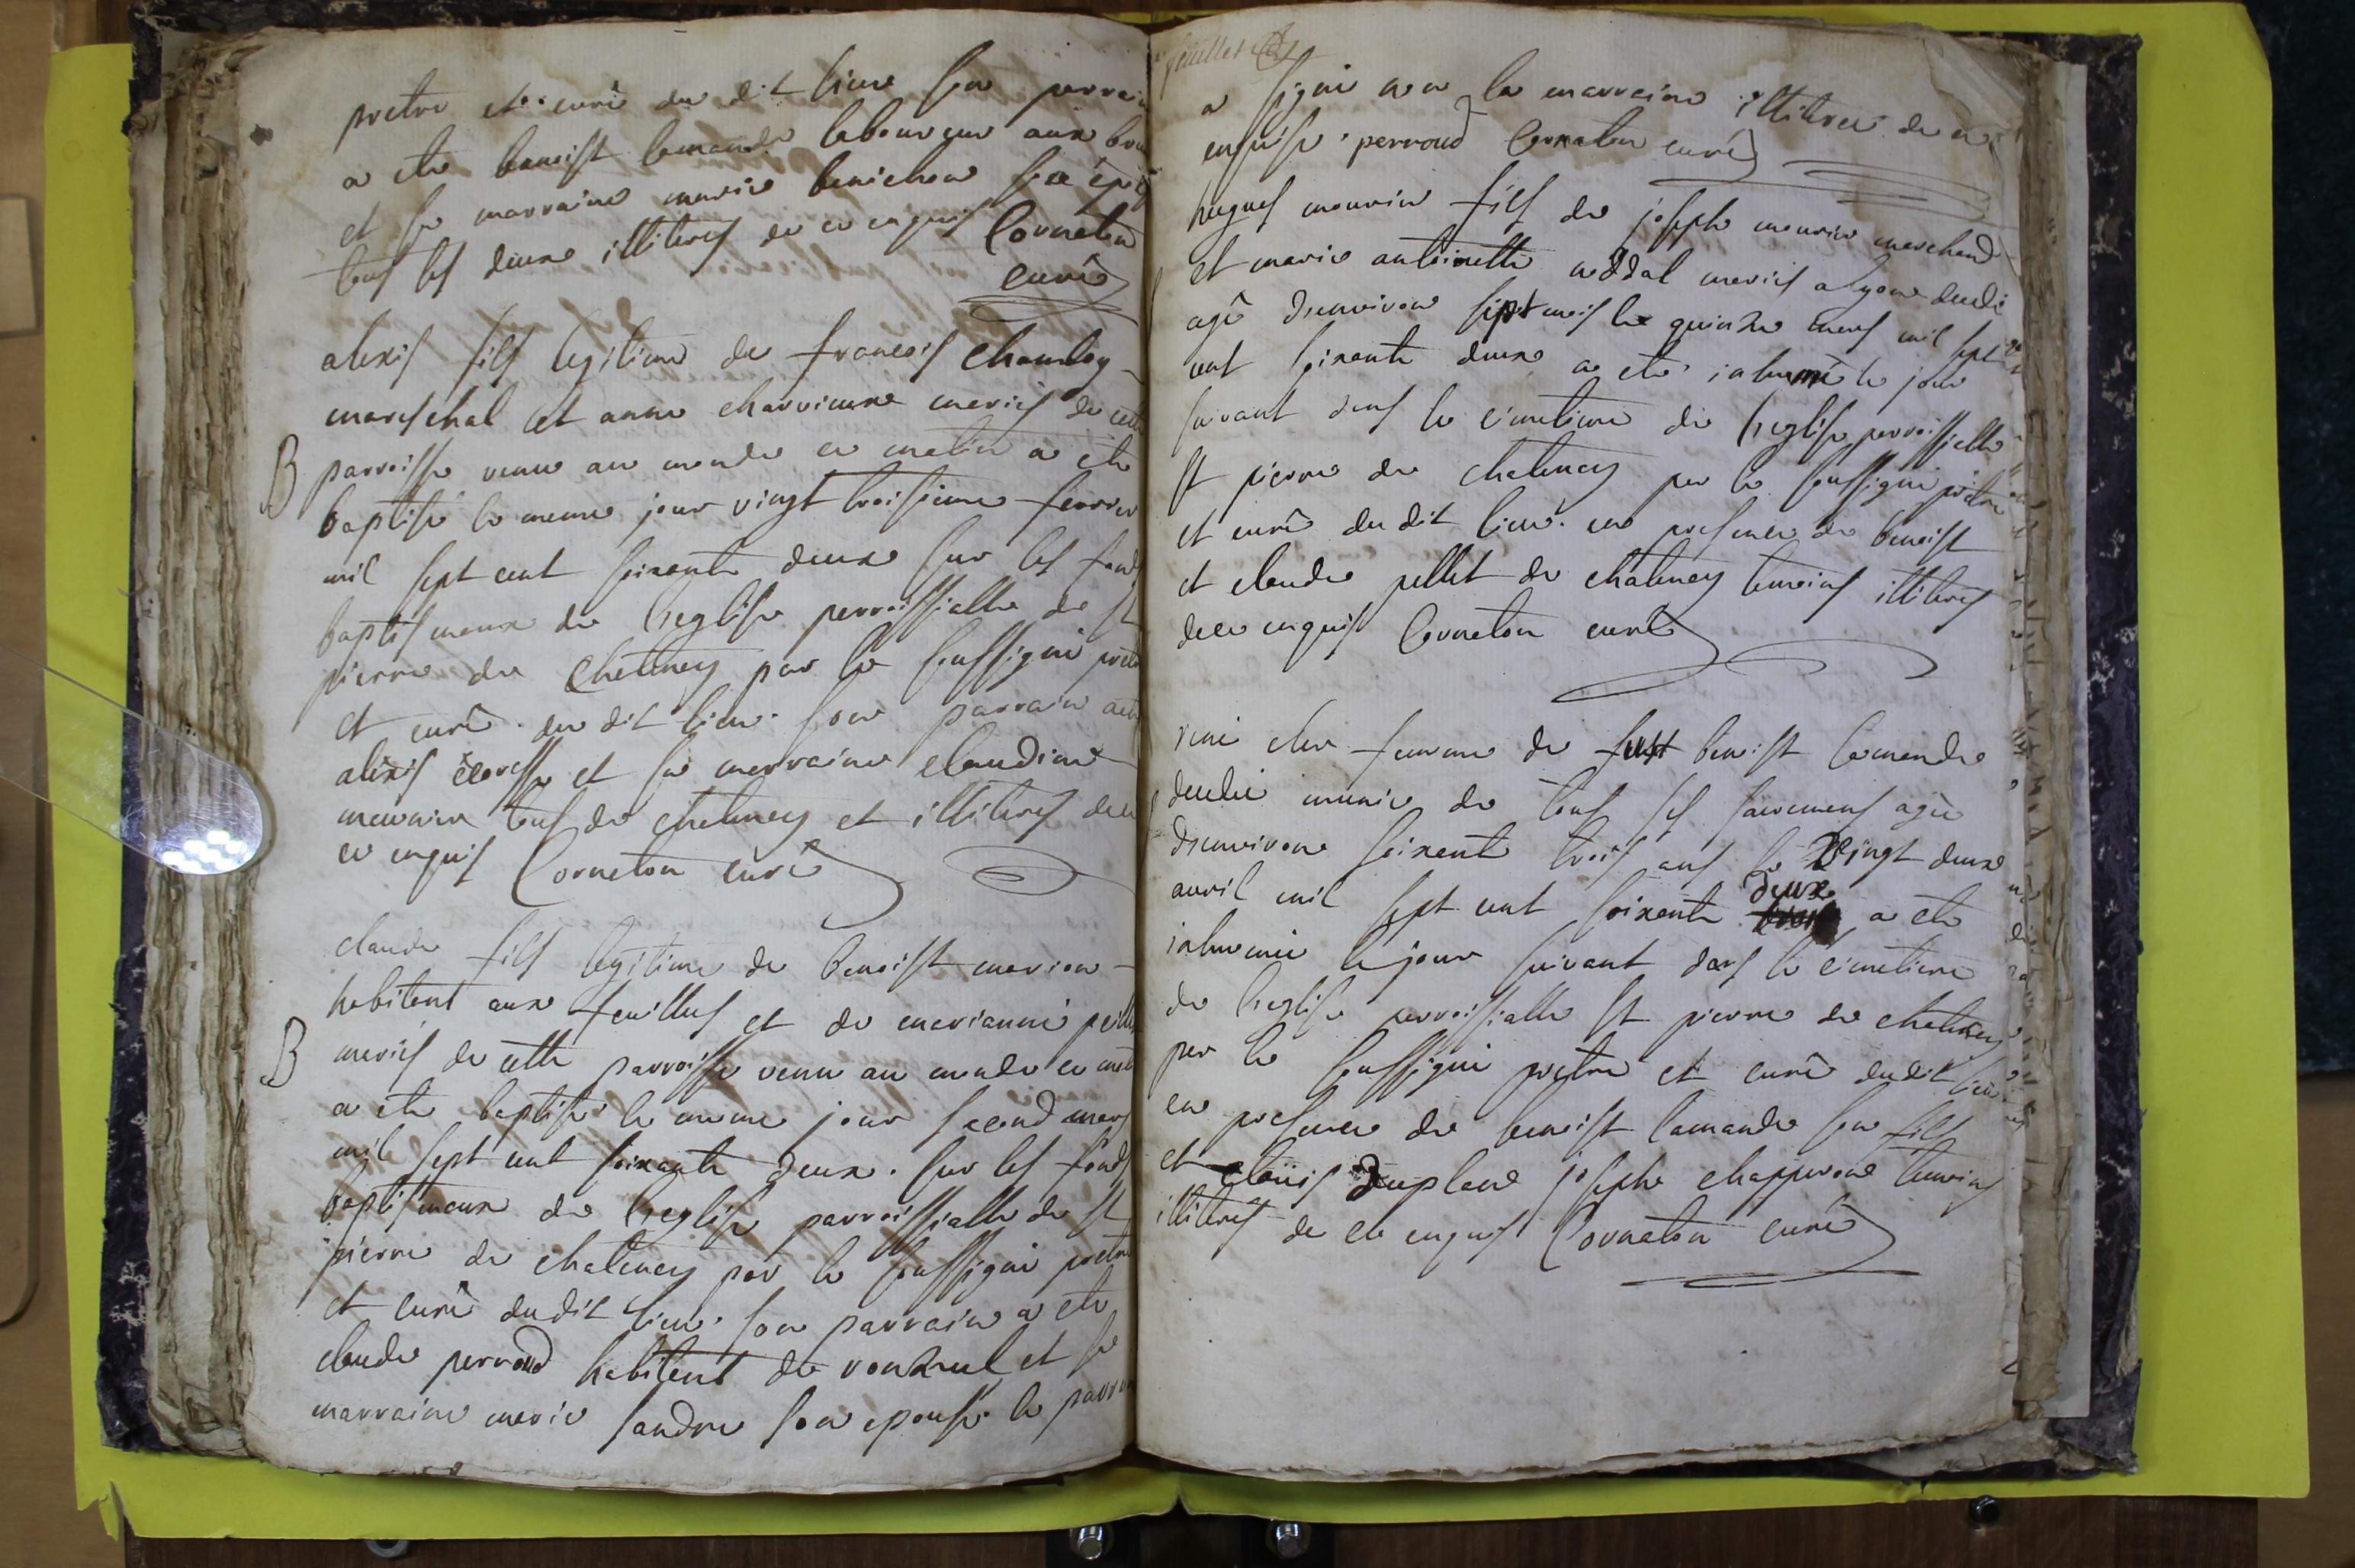 pretre et curé du dit lieu son parrain
a ete benoist lamandr laboureur aux
et sa marraine marie benichon
tous les deux illiteres de ce enquis Cornaton
curé
alexis fils legitime de francois Chambog
mareschal et anne charvieux mariés de cette
B parroisse venu au monde ce matin a ete
baptisé le meme jour vingt troisieme fevrier
mil sept cent soixante deux sur les fonds
baptismaux de l'eglise parroissialle de st
pierre de Chatenay par le soussigné pretre
et curé du dit lieu. son parrain a ete
alexis et sa marraine claudine
tous de chatenay et illiteres de
ce enquis Cornaton curé
claude fils legitime de benoist marion
habitent aux feuilles et de marianne
B mariés de cette parroisse venu au monde ce matin
a ete baptisé le meme jour second mars
mil sept cent soixante deux. sur les fonds
baptismaux de l'eglise parroissialle de st
pierre de chatenay par le soussigné pretre
et curé du dit lieu. son parrain a ete
claude perroud habitent de et sa
marraine marie sandre son epouse le parrain
feuillet
a signé non la marraine illiteree de ce
enquise. perroud Cornaton curé
hugues mourier fils de joseph mourier marchand
et marie antoinette addal mariés a lyon decede
agé d'environ sept mois le quinze mars mil sept
cent soixante deux a ete inhumé le jour
suivant dans le cimetiere de l'eglise parroissialle
st pierre de chatenay par le soussigné pretre
et curé du dit lieu. en presence de benoist
et claude pellet de chatenay temoins illiteres
de ce enquis Cornaton curé
femme de benoist lamandre
decedée munie de tous ses sacremens agée
d'environ soixante trois ans le vingt deux
avril mil sept cent soixante deux a ete
inhumée le jour suivant dans le cimetiere
de l'eglise parroissialle st pierre de chatenay
par le soussigné pretre et curé dudit lieu
en presence de benoist lamandre son fils
et duplane joseph chapperon temoins
illiteres de ce enquis Cornaton curé